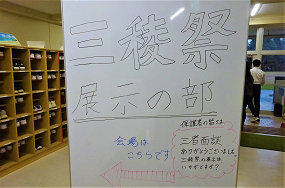 三稜祭
展示の部
会場は
こちらです
保護者の皆さま
三者面談
ありがとうございました
三稜祭の展示は
いかがですか？